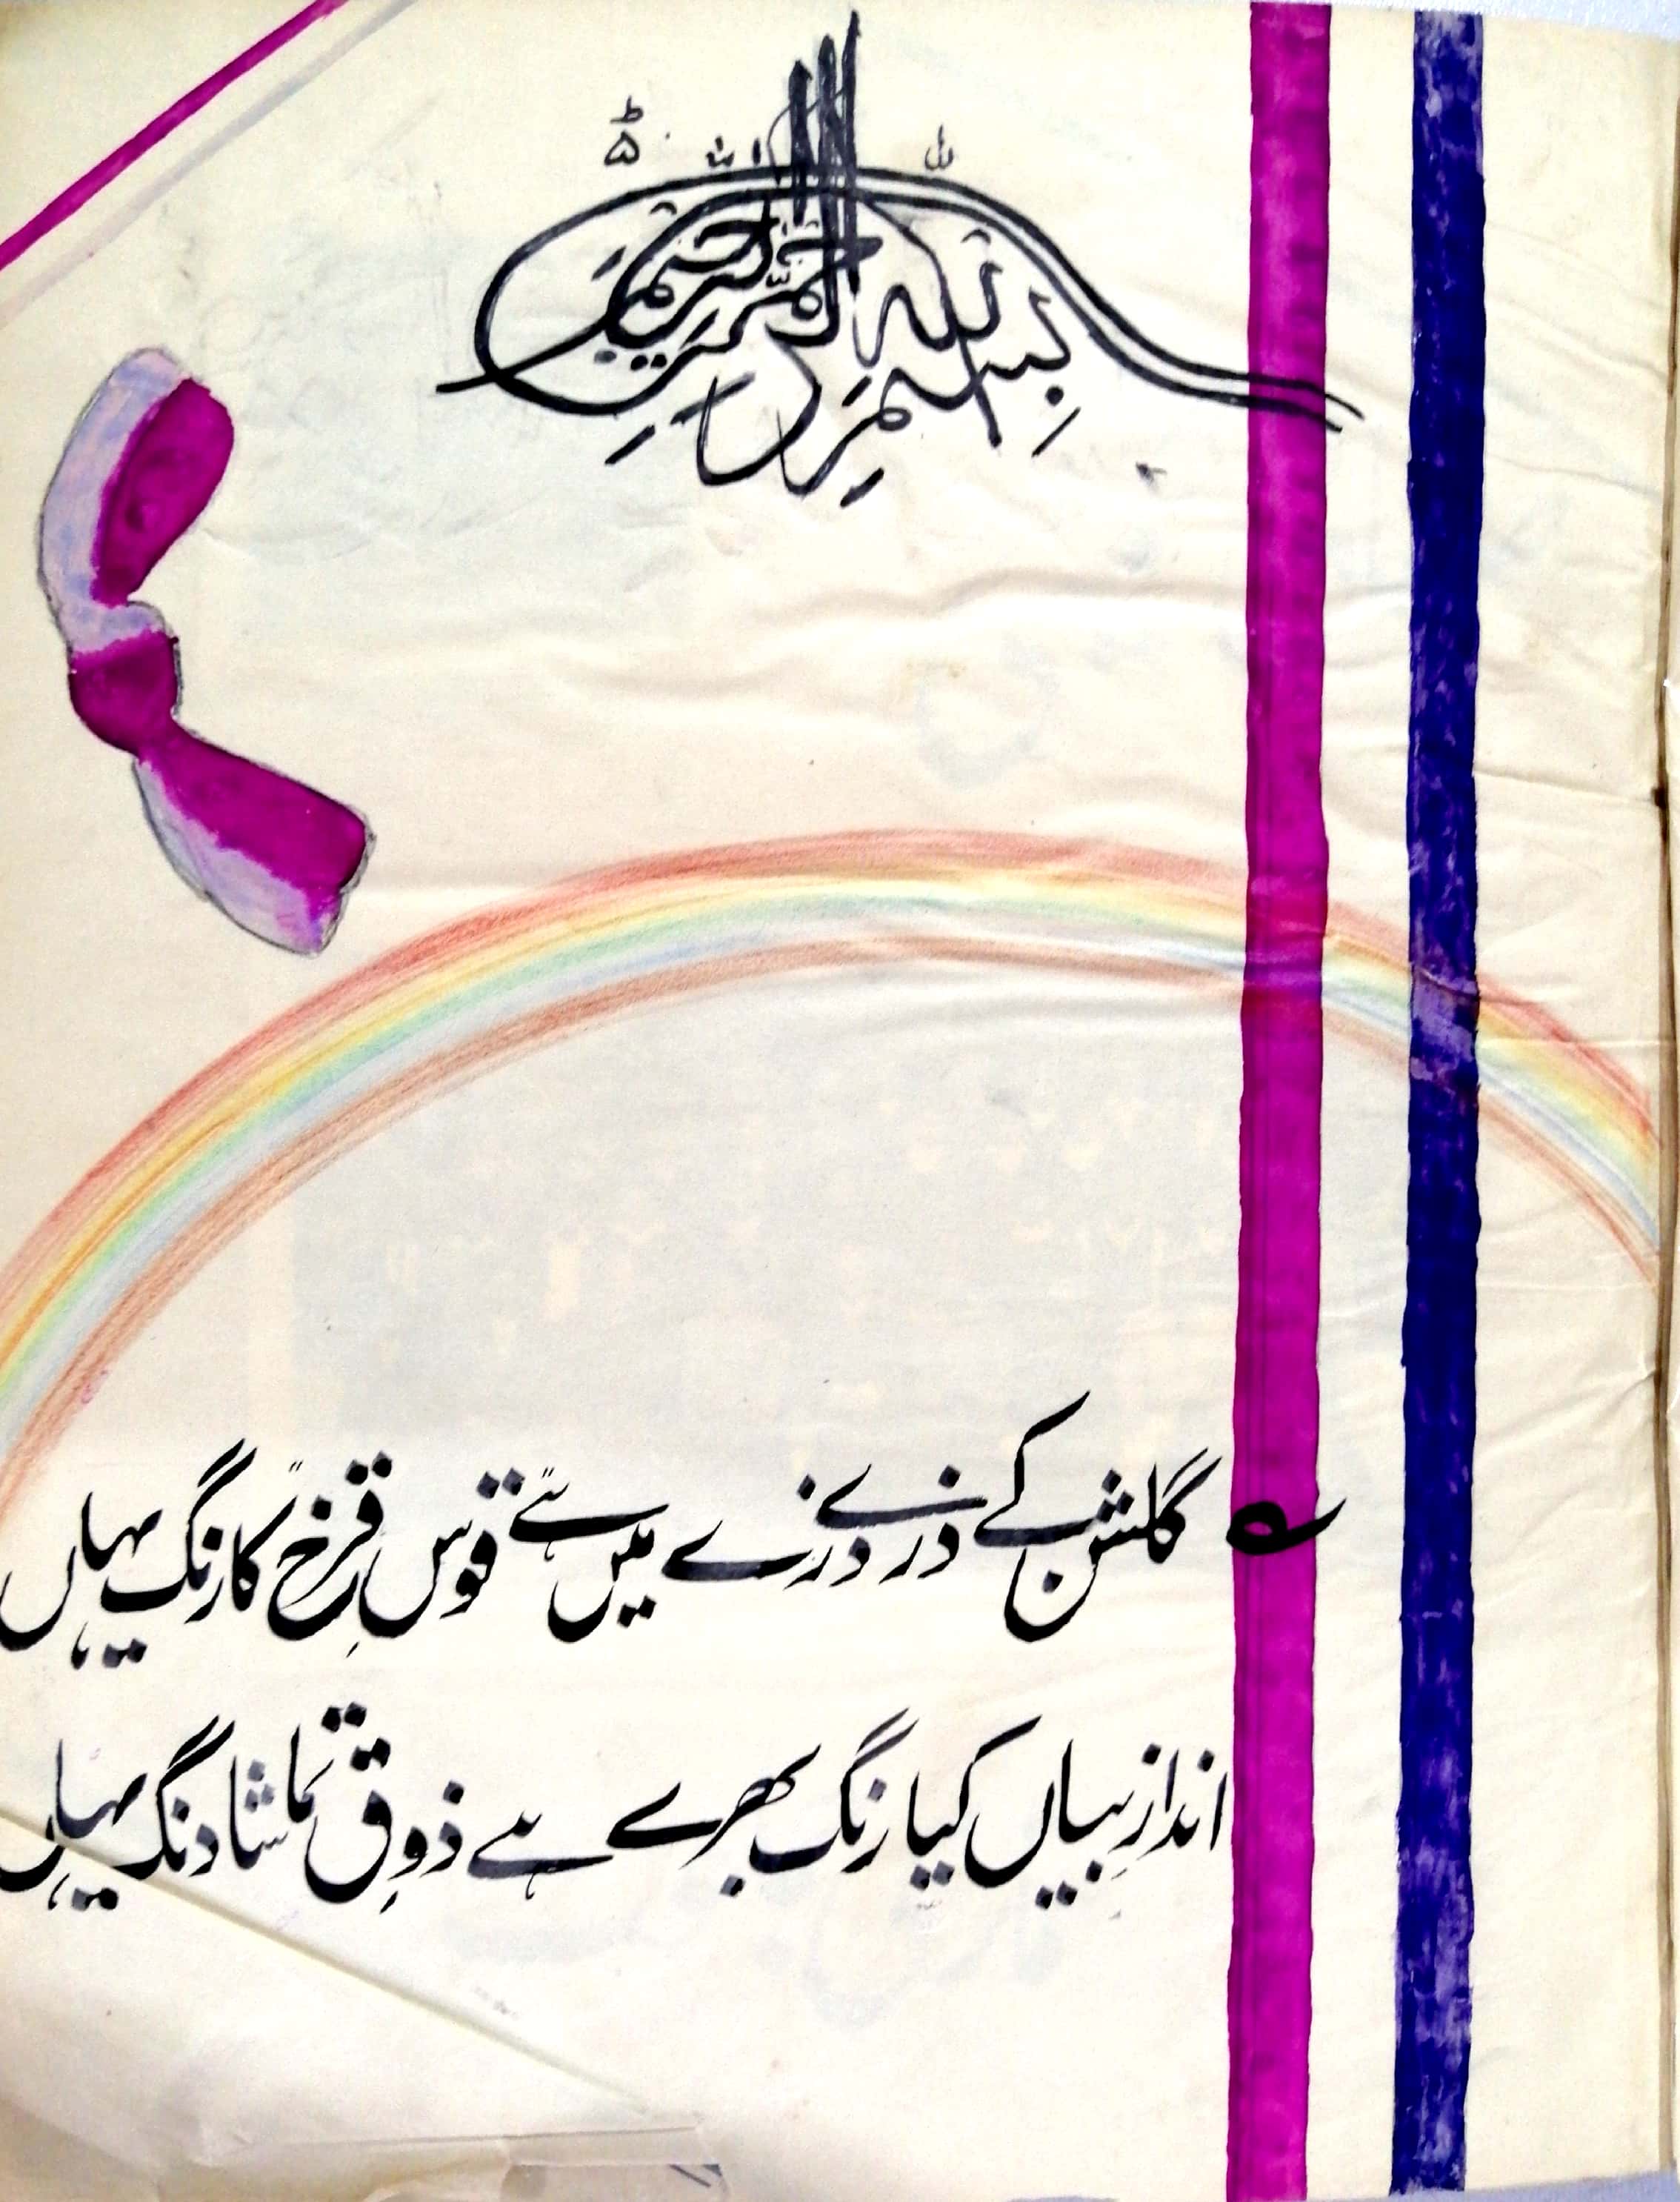 بِسْمِ اللهِ الرَّحْمٰنِ الرَّحِيْمِ
گلشن کے ذرے ذرے میں ہے قوسِ قزح کا رنگ یہاں
اندازِ بیاں کیا رنگ بھرے ہے ذوقِ تماشا دنگ یہاں